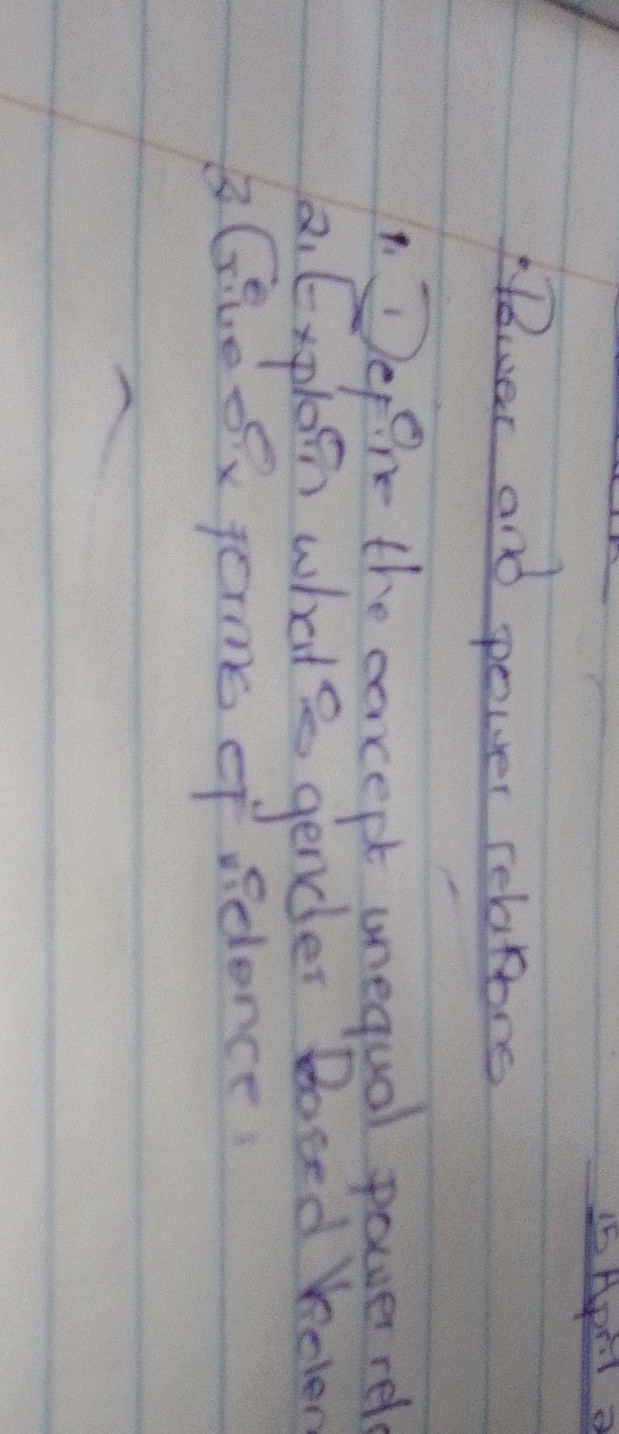 15 April 2
• Power and power relations
1. Define the concept unequal power rela
2. Explain what is gender Based Violen
3. Give six forms of violence.